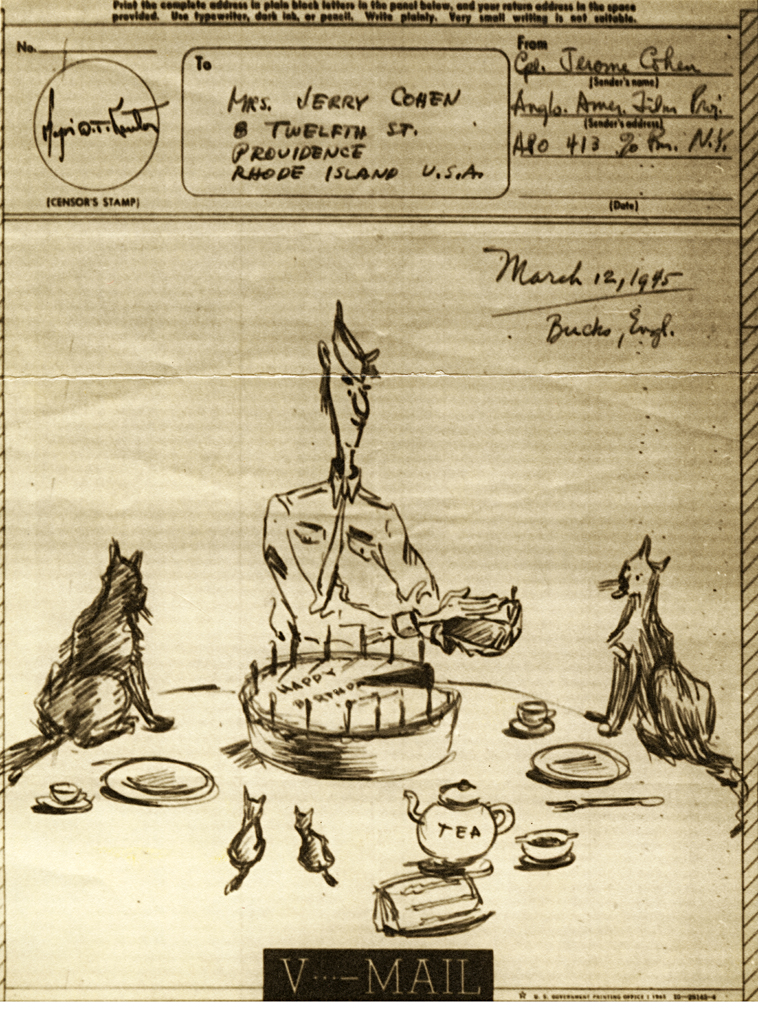 Print the complete address in plain block letters in the panel below, and your return address in the space
provided. Use typewriter, dark ink, or pencil. Write plainly. Very small writing is not suitable.
No.
(CENSOR'S STAMP)
To
MRS. JERRY COHEN
8 TWELFTH ST.
PROVIDENCE
RHODE ISLAND U.S.A.
From
Cpl. Jerome Cohen
(Sender's name)
Anglo. Amer. Film Proj.
(Sender's address)
APO 413 c/o Pm. N.Y.
(Date)
March 12, 1945
Bucks, Engl.
HAPPY
BIRTHD
TEA
V···—MAIL
U. S. GOVERNMENT PRINTING OFFICE : 1943